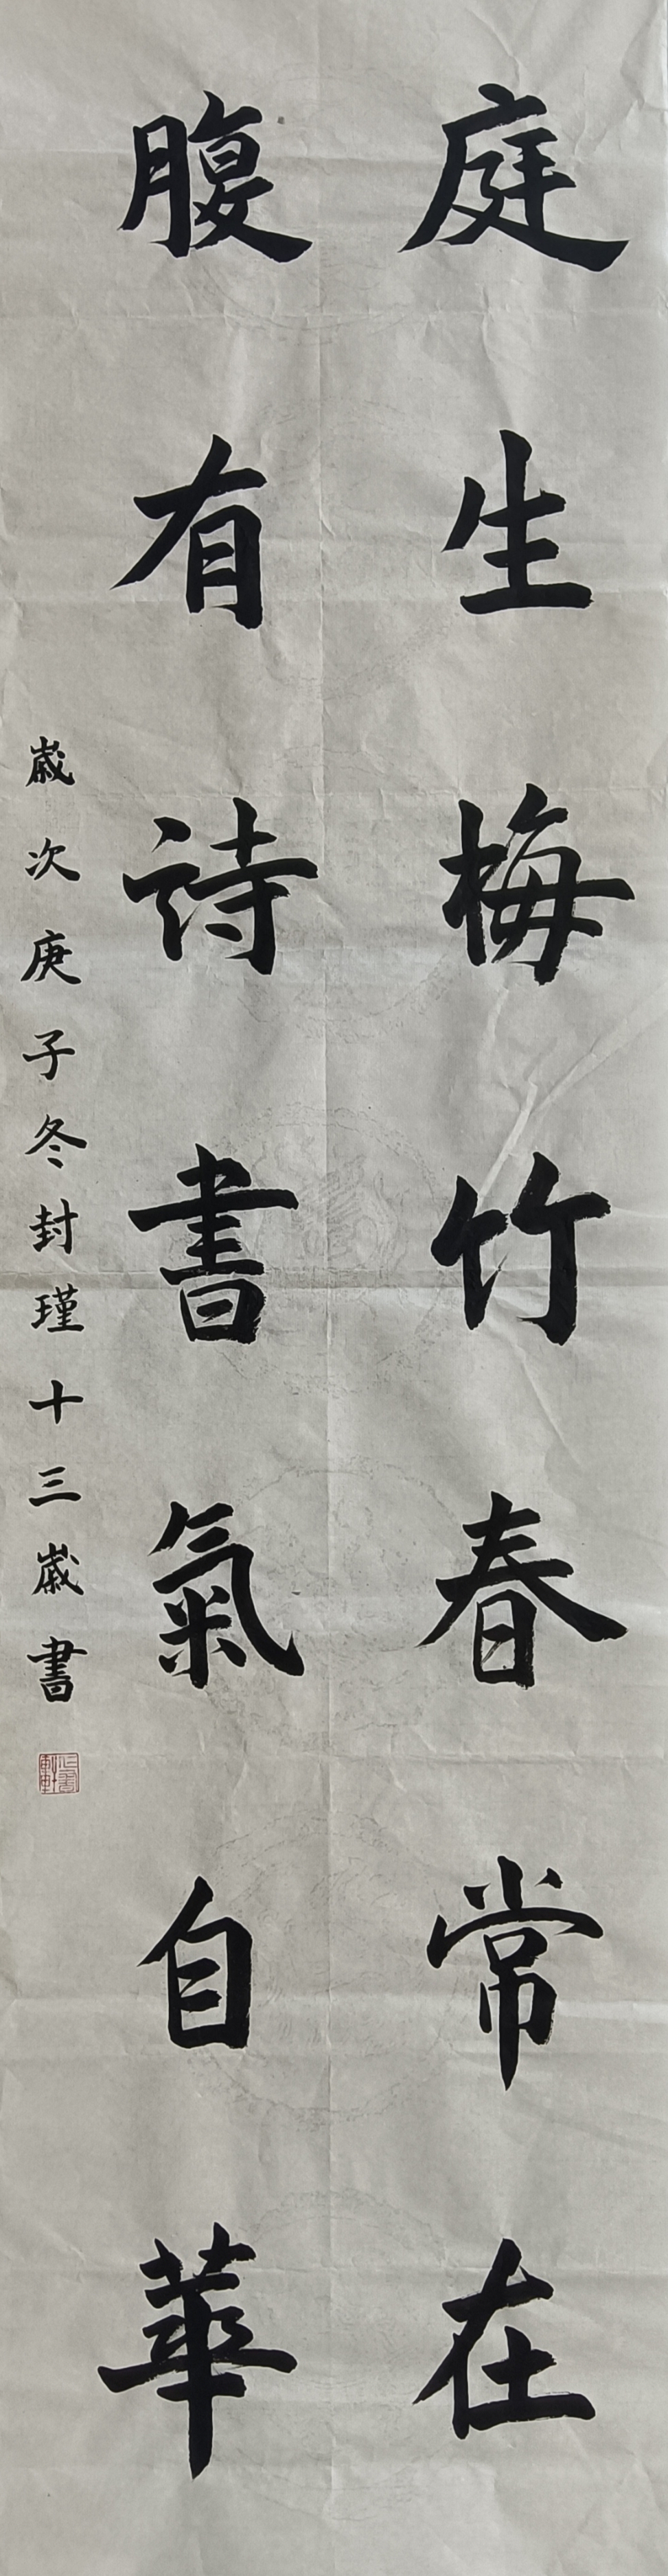 庭生梅竹春常在
腹有詩書氣自華
歲次庚子冬封瑾十三歲書